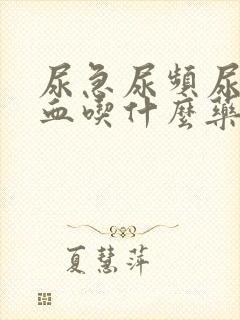 尿急尿頻尿
血喫什麼藥
夏慧萍